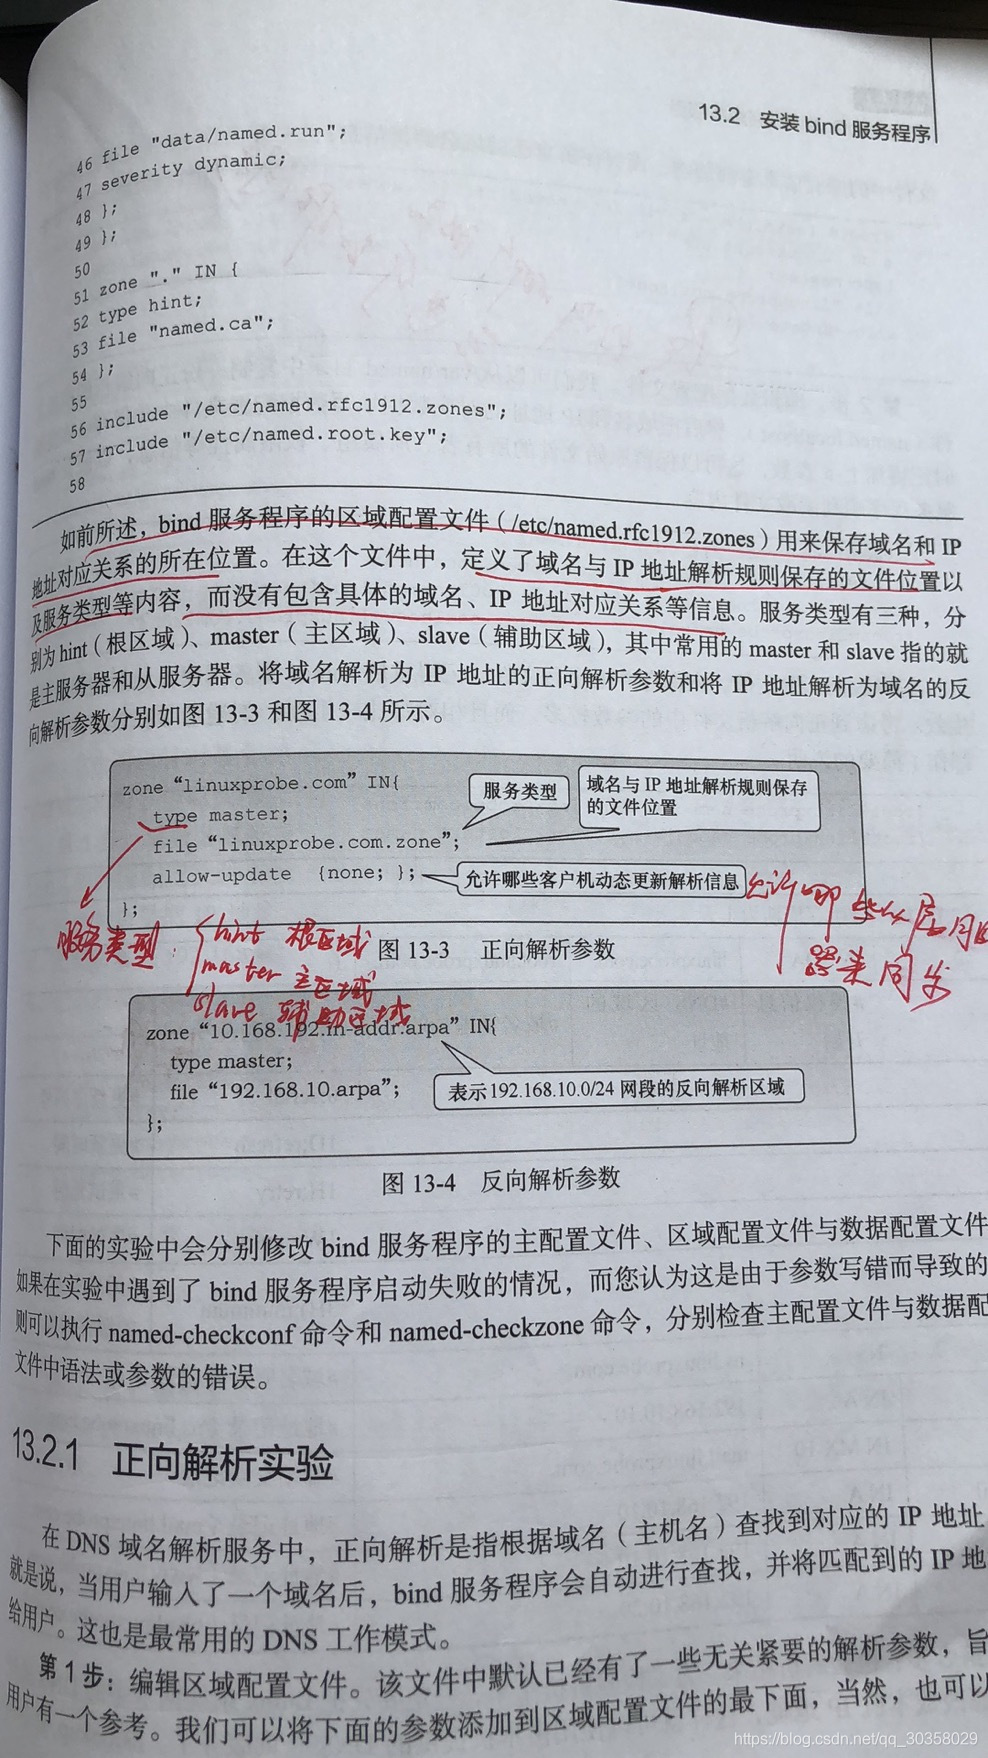 13.2 安装 bind 服务程序
46 file "data/named.run";
47 severity dynamic;
48 };
49 };
50
51 zone "." IN {
52 type hint;
53 file "named.ca";
54 };
55
56 include "/etc/named.rfc1912.zones";
57 include "/etc/named.root.key";
58
如前所述，bind 服务程序的区域配置文件（/etc/named.rfc1912.zones）用来保存域名和 IP
地址对应关系的所在位置。在这个文件中，定义了域名与 IP 地址解析规则保存的文件位置以
及服务类型等内容，而没有包含具体的域名、IP 地址对应关系等信息。服务类型有三种，分
别为 hint（根区域）、master（主区域）、slave（辅助区域），其中常用的 master 和 slave 指的就
是主服务器和从服务器。将域名解析为 IP 地址的正向解析参数和将 IP 地址解析为域名的反
向解析参数分别如图 13-3 和图 13-4 所示。
zone “linuxprobe.com” IN{
服务类型
域名与 IP 地址解析规则保存
的文件位置
type master;
file “linuxprobe.com.zone”;
allow-update {none; };
允许哪些客户机动态更新解析信息
};
允许哪些从启用服
器来同步
服务类型：
hint 根区域
master 主区域
slave 辅助区域
图 13-3 正向解析参数
zone “10.168.192.in-addr.arpa” IN{
type master;
file “192.168.10.arpa”;
表示 192.168.10.0/24 网段的反向解析区域
};
图 13-4 反向解析参数
下面的实验中会分别修改 bind 服务程序的主配置文件、区域配置文件与数据配置文件
如果在实验中遇到了 bind 服务程序启动失败的情况，而您认为这是由于参数写错而导致的
则可以执行 named-checkconf 命令和 named-checkzone 命令，分别检查主配置文件与数据配
文件中语法或参数的错误。
13.2.1 正向解析实验
在 DNS 域名解析服务中，正向解析是指根据域名（主机名）查找到对应的 IP 地址
就是说，当用户输入了一个域名后，bind 服务程序会自动进行查找，并将匹配到的 IP 地
给用户。这也是最常用的 DNS 工作模式。
第 1 步：编辑区域配置文件。该文件中默认已经有了一些无关紧要的解析参数，旨
用户有一个参考。我们可以将下面的参数添加到区域配置文件的最下面，当然，也可以
https://blog.csdn.net/qq_30358029